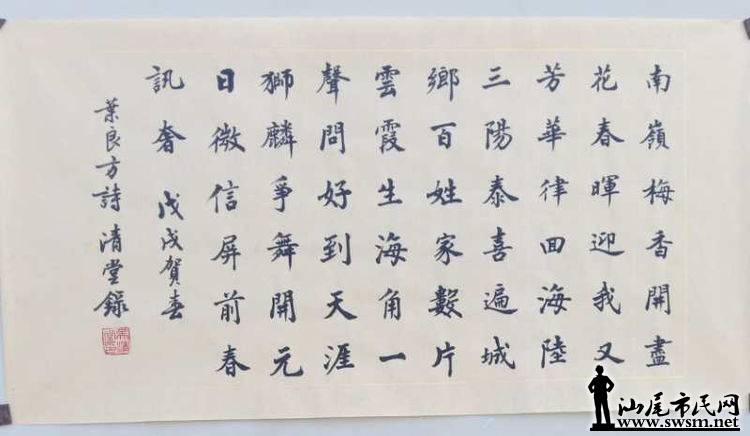 南嶺梅香開盡
花春暉迎我又
芳華律回海陸
三陽泰喜遍城
鄉百姓家數片
雲霞生海角一
聲問好到天涯
獅麟爭舞開元
日微信屏前春
訊奢 戊戌賀春
葉良方詩清堂錄
汕尾市民网
www.swsm.net